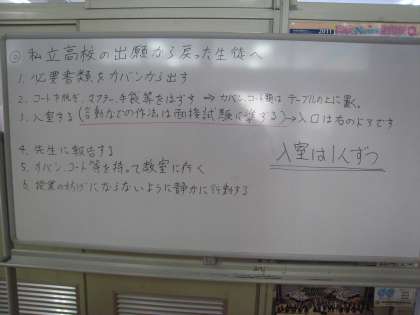 ◎ 私立高校の出願から戻った生徒へ
1. 必要書類をカバンから出す
2. コートを脱ぎ、マフラー、手袋等をはずす ⇒ カバン、コート類はテーブルの上に置く。
3. 入室する (言動などの作法は面接試験に準ずる) → 入口は右のドアです
4. 先生に報告する
入室は1人ずつ
5. カバン、コート等を持って教室に行く
6. 授業の妨げにならないように静かに行動する
2011